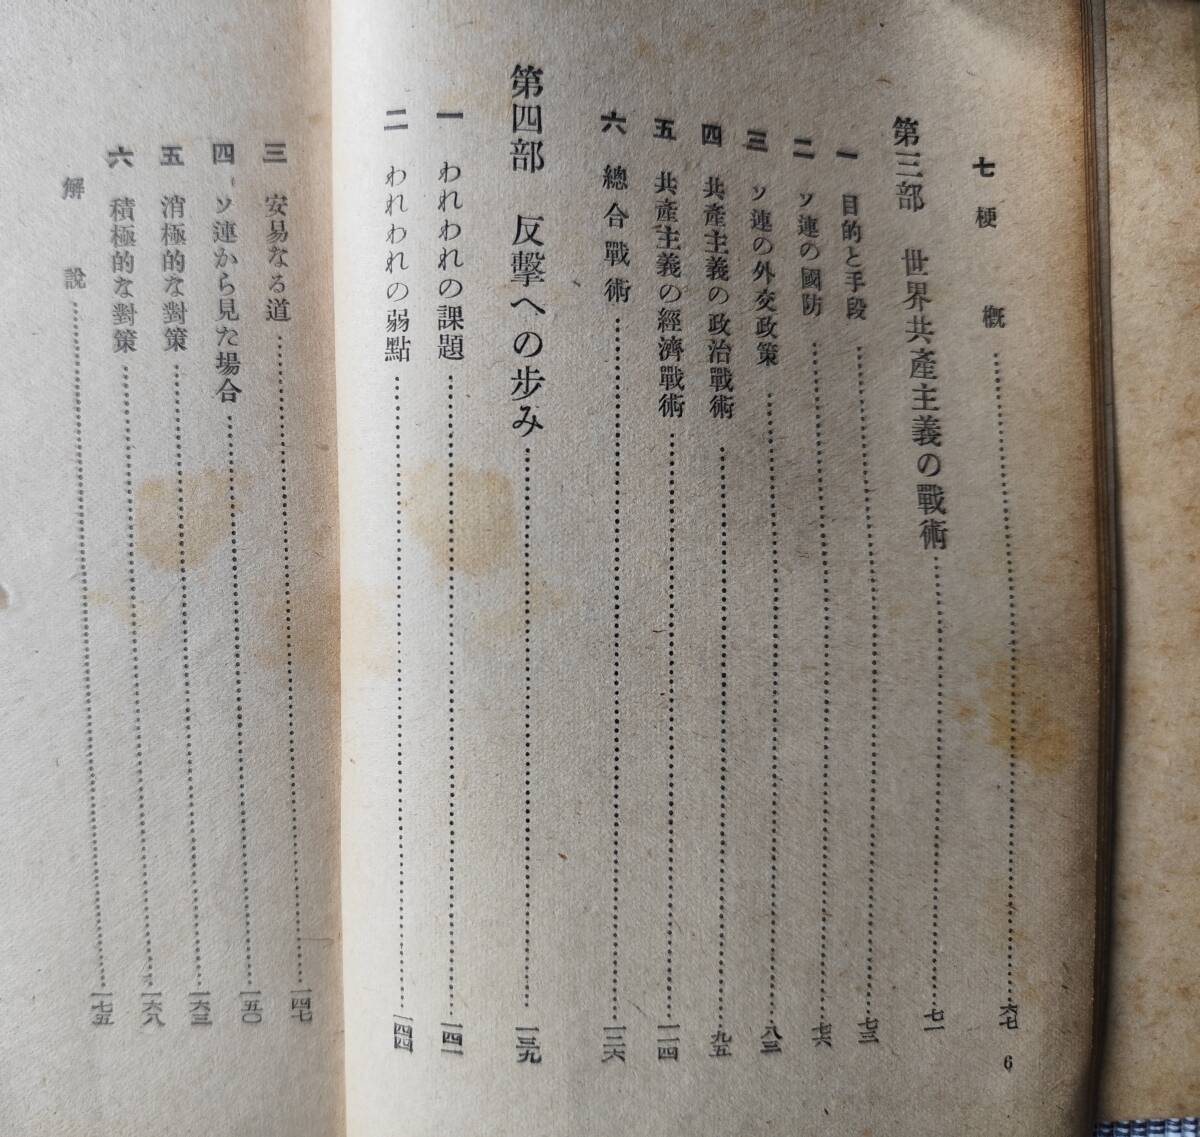 七 梗概……六七
第三部 世界共產主義の戰術……七一
一 目的と手段……七三
二 ソ連の國防……七六
三 ソ連の外交政策……八三
四 共產主義の政治戰術……九五
五 共產主義の經濟戰術……一一四
六 總合戰術……一二六
第四部 反擊への步み……一三九
一 われわれの課題……一四一
二 われわれの弱點……一四四
三 安易なる道……一四七
四 ソ連から見た場合……一五〇
五 消極的な對策……一六三
六 積極的な對策……一六八
解說……一七五
6